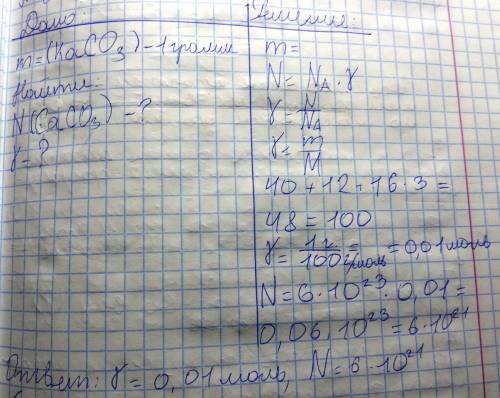 Дано:
m=(КаСО3) – 1 грамм
Найти:
N(СаСО3) – ?
γ – ?
Решение:
m=
N = NA · γ
γ = N/NA
γ = m/M
40 + 12 + 16 · 3 =
48 = 100
γ = 1г/100г/моль = = 0,01 моль
N = 6 · 10²³ · 0,01 =
0,06 · 10²³ = 6 · 10²¹
Ответ: γ = 0,01 моль, N = 6 · 10²¹